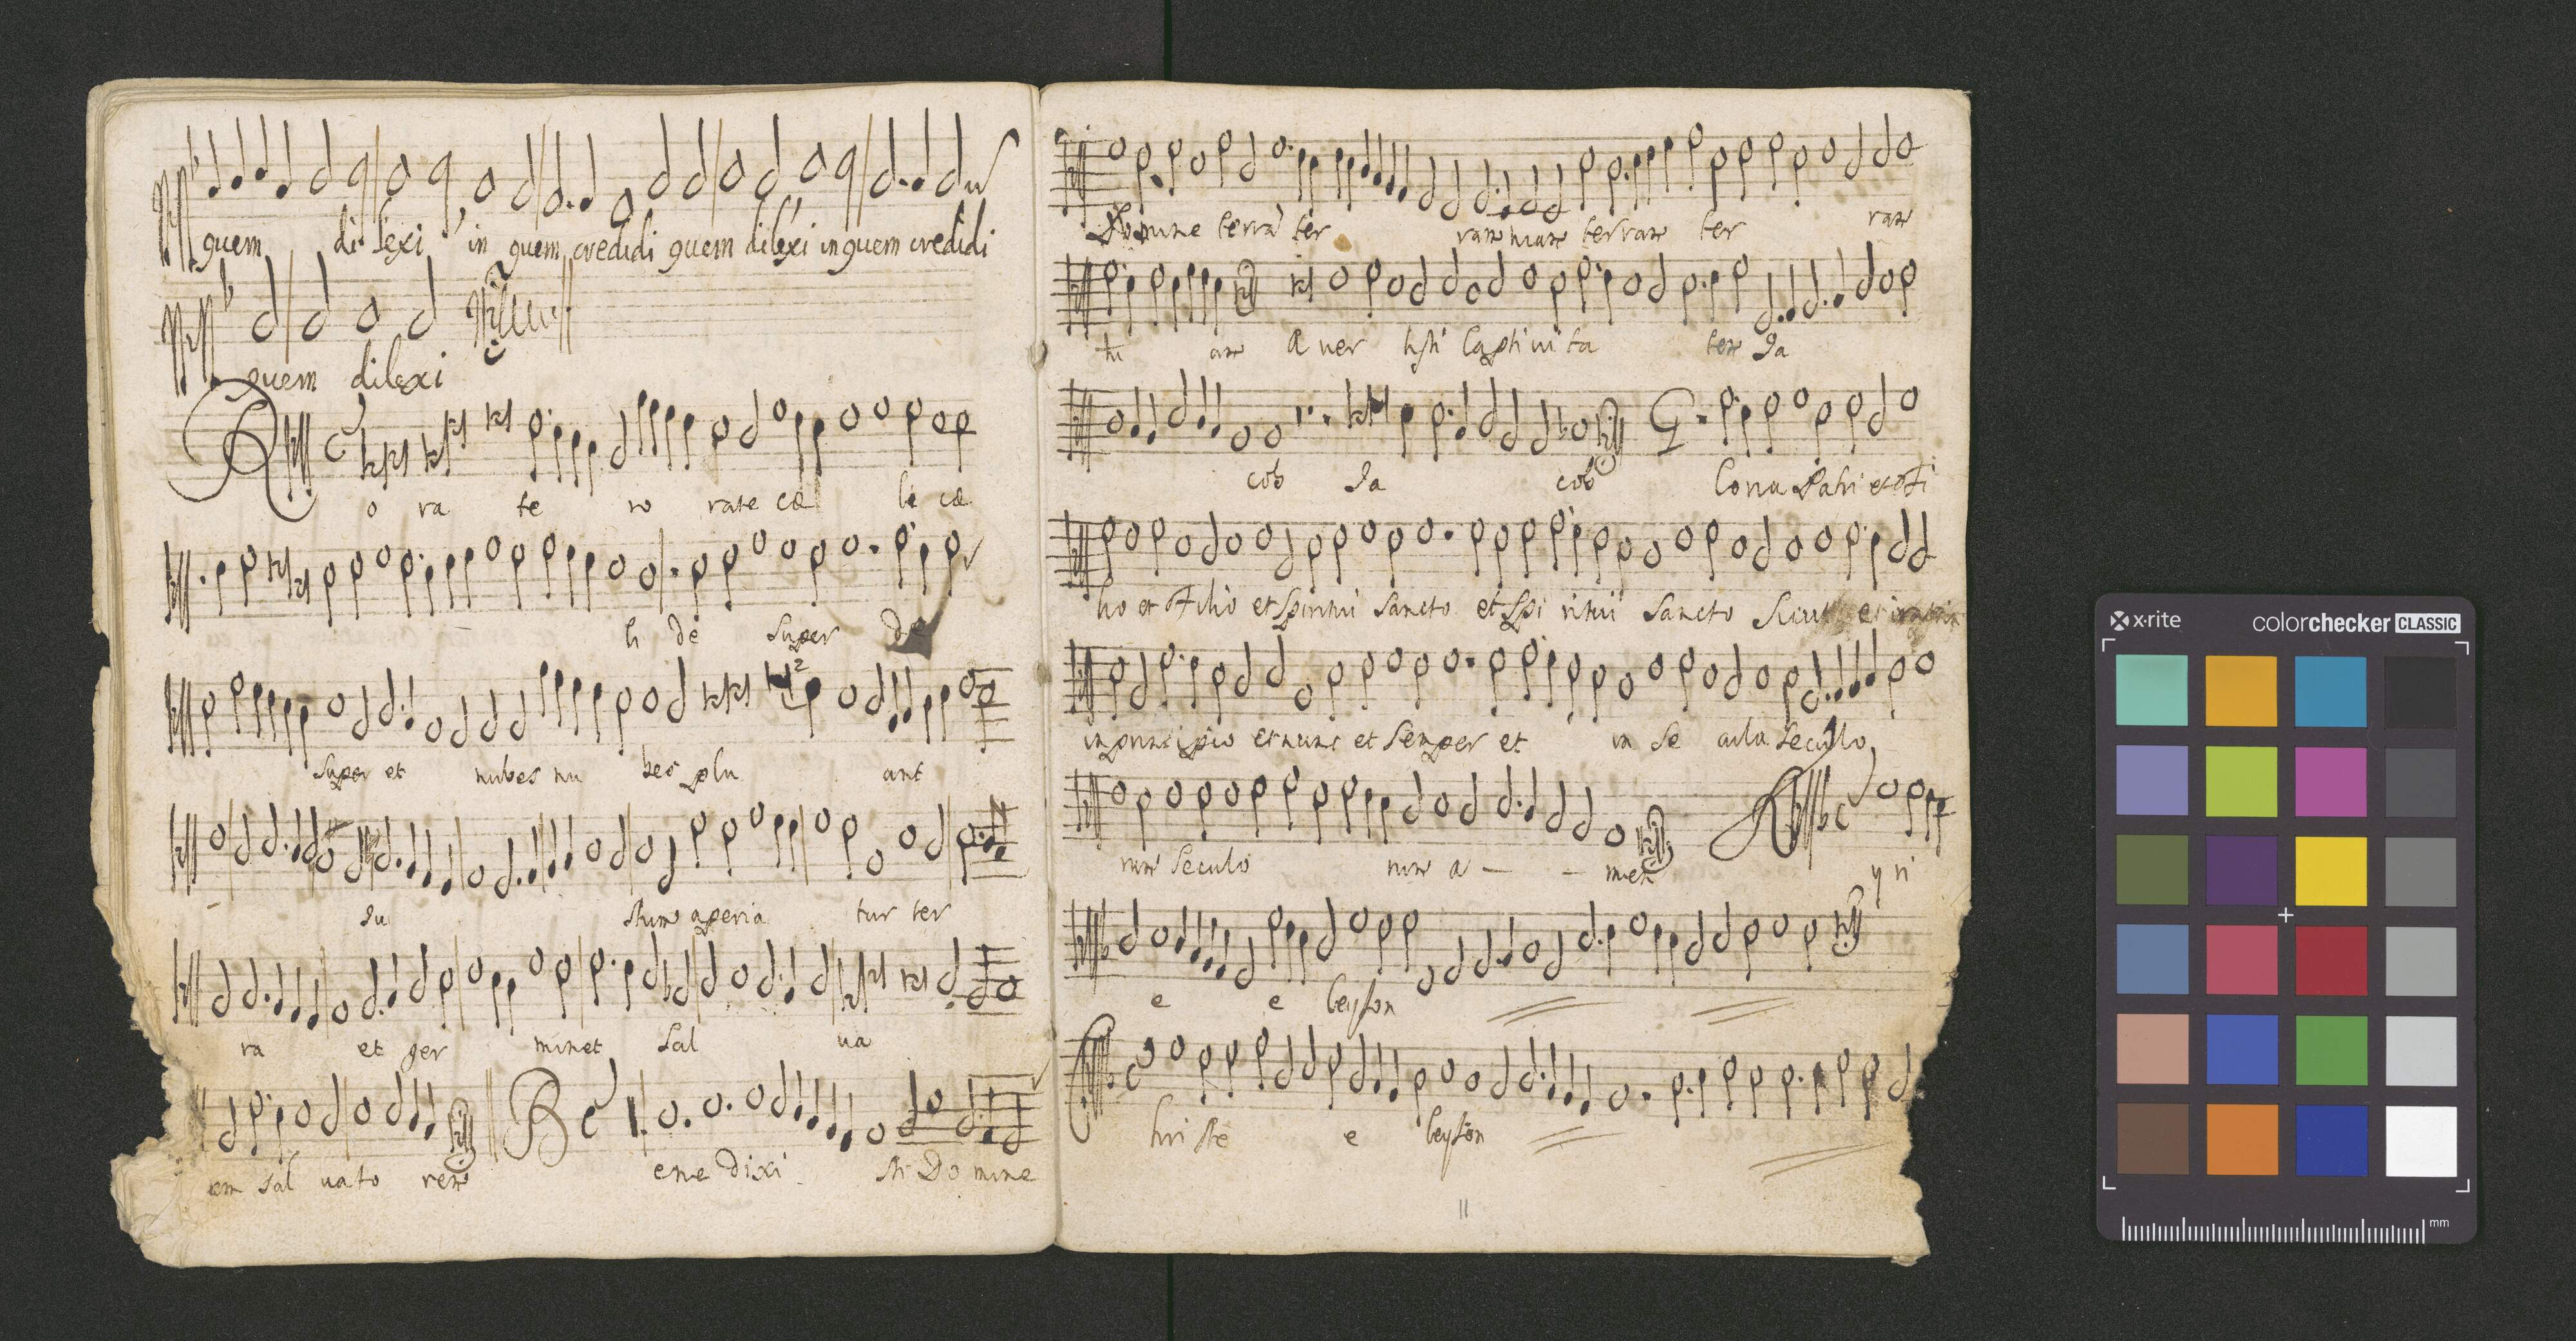 quem di lexi in quem credidi quem dilexi in quem credidi
quem dilexi
R o ra te ro rate cæ le cæ
li de super de
super et nubes nu bes plu ant
Ju stum aperia tur ter
ra et ger minet sal ua
em sal uato rem
B ene dixi sti Do mine
Domine terra ter ram tuam terram ter ram
tu am A uer tisti Captiui ta tem Ja
cob Ja cob G loria Patri et Fi
lio et Filio et Spiritui Sancto et Spi ritui Sancto Sicut erat
in principio et nunc et semper et in se cula seculo
rum seculo rum a - - men K y ri
e e leyson
C hri ste e leyson
11
x·rite colorchecker CLASSIC
mm